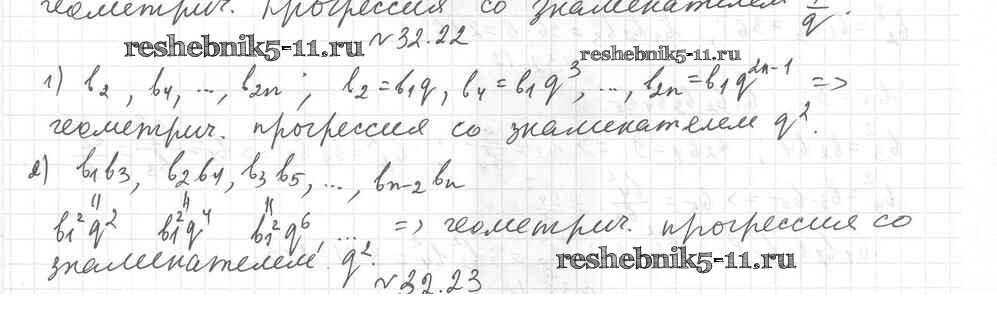 геометрич. прогрессия со знаменателем 1/q.
reshebnik5-11.ru №32.22 reshebnik5-11.ru
1) b₂, b₄, ..., b₂ₙ; b₂=b₁q, b₄=b₁q³, ..., b₂ₙ=b₁q²ⁿ⁻¹ =>
геометрич. прогрессия со знаменателем q².
2) b₁b₃, b₂b₄, b₃b₅, ..., bₙ₋₂bₙ
b₁²q² b₁²q⁴ b₁²q⁶, ... => геометрич. прогрессия со
знаменателем q².
reshebnik5-11.ru
№32.23